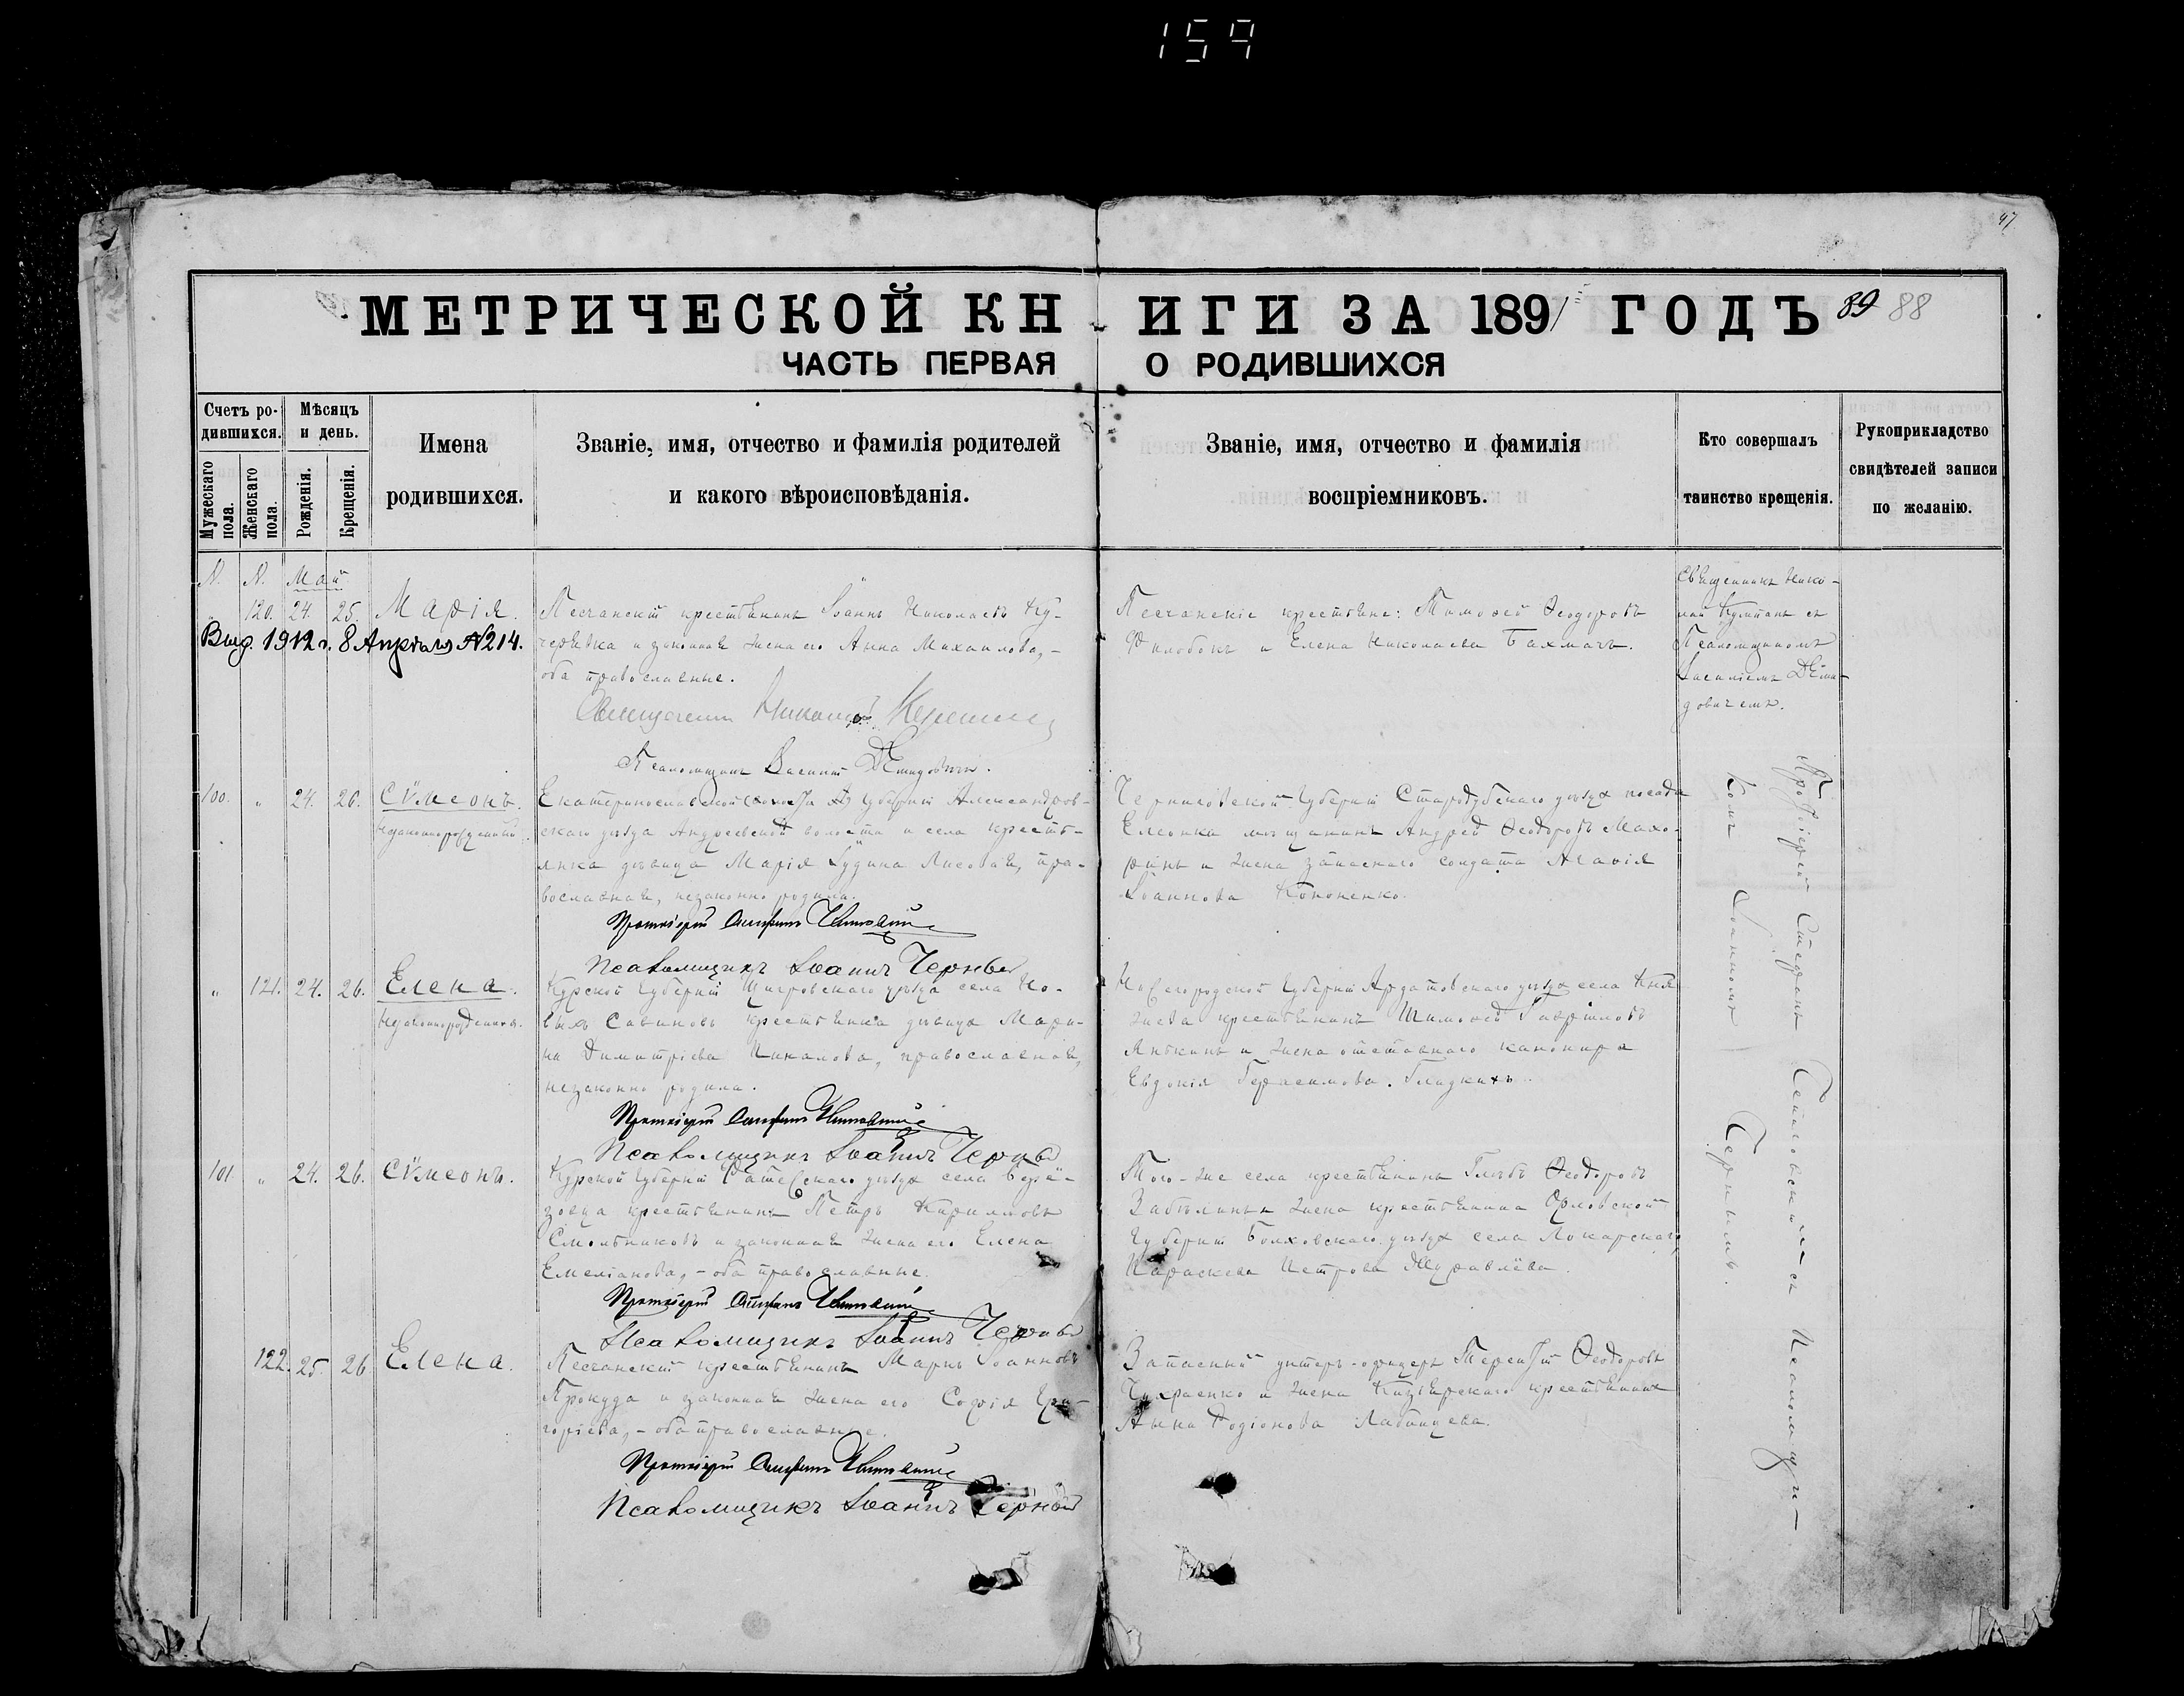 159
47
МЕТРИЧЕСКОЙ КНИГИ ЗА 1891 ГОДЪ 89 88
ЧАСТЬ ПЕРВАЯ О РОДИВШИХСЯ
Счетъ ро-
дившихся.
Мужескаго пола.
Женскаго пола.
Мѣсяцъ
и день.
Рожденія.
Крещенія.
Имена
родившихся.
Званіе, имя, отчество и фамилія родителей
и какого вѣроисповѣданія.
Званіе, имя, отчество и фамилія
воспріемниковъ.
Кто совершалъ
таинство крещенія.
Рукоприкладство
свидѣтелей записи
по желанію.
N. N. Май
120. 24. 25. Марія.
Выд. 1912 г. 8 Апрѣля № 214.
Песчанскій крестьянинъ Іоаннъ Николаевъ Ку-
черявка и законная жена его Анна Михаилова,-
оба православные.
Священникъ Николай
Псаломщикъ Василій Демидовичъ.
Песчанскіе крестьяне: Тимоѳей Ѳеодоровъ
и Елена Николаева Бахмачъ.
Священникъ Нико-
лай съ
Псаломщикомъ
Василіемъ Деми-
довичемъ.
100. " 24. 26. Сѵмеонъ.
Незаконнорожденный.
Екатеринославской Губерніи Александров-
скаго уѣзда Андреевской волости и села кресть-
янка дѣвица Марія Іудина Лисовая, пра-
вославная, незаконно родила.
Протоіерей Стефанъ
Псаломщикъ Іоаннъ Черный
Черниговской Губерніи Стародубскаго уѣзда посада
Елеонки мѣщанинъ Андрей Ѳеодоровъ Махо-
ринъ и жена запаснаго солдата Агаѳія
Іоаннова Кононенко.
" 121. 24. 26. Елена.
Незаконнорожденная.
Курской Губерніи Щигровскаго уѣзда села Но-
выхъ Савиновъ крестьянка дѣвица Мари-
на Димитріева Пикалова, православная,
незаконно родила.
Протоіерей Стефанъ
Псаломщикъ Іоаннъ Черный
Нижегородской Губерніи Ардатовскаго уѣзда села Кня-
жева крестьянинъ Тимоѳей Гавріиловъ
Янькинъ и жена отставнаго канонира
Евдокія Герасимова Гладкихъ.
101 " 24. 26. Сѵмеонъ.
Курской Губерніи Фатежскаго уѣзда села Берё-
зовца крестьянинъ Петръ Кирилловъ
Смольниковъ и законная жена его Елена
Емеліанова,- оба православные.
Протоіерей Стефанъ
Псаломщикъ Іоаннъ Черный
Того-же села крестьянинъ Глѣбъ Ѳеодоровъ
Забѣлинъ и жена крестьянина Орловской
Губерніи Болховскаго уѣзда села
Параскева Петрова Журавлёва.
122. 25. 26 Елена.
Песчанскій крестьянинъ Маркъ Іоанновъ
Прокуда и законная жена его Софія Гри-
горіева,- оба православные.
Протоіерей Стефанъ
Псаломщикъ Іоаннъ Черный
Запасный унтеръ-офицеръ Терентій Ѳеодоровъ
и жена крестьянина
Анна Родіонова Лабинцева.
Протоіерей Стефанъ съ Псаломщи-
комъ Іоанномъ Чернымъ.